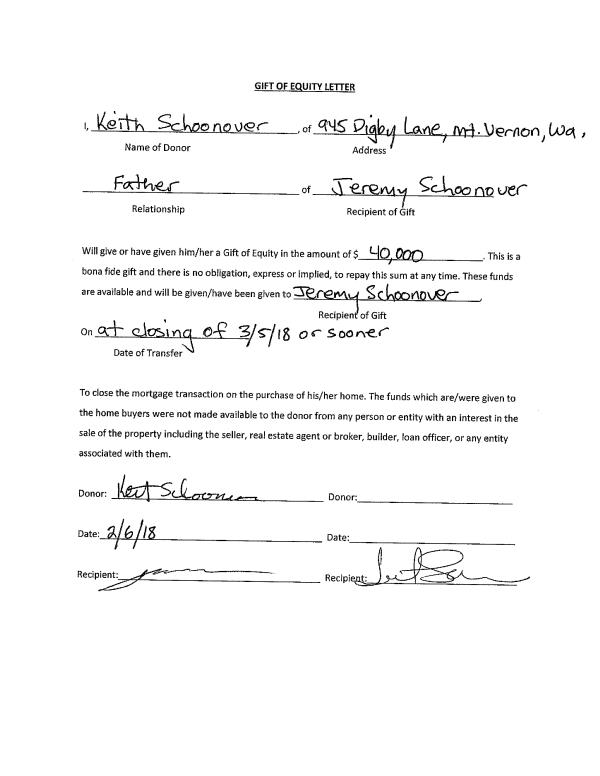 GIFT OF EQUITY LETTER
I, Keith Schoonover, of 945 Digby Lane, Mt. Vernon, Wa,
Name of Donor Address
Father of Jeremy Schoonover
Relationship Recipient of Gift
Will give or have given him/her a Gift of Equity in the amount of $ 40,000. This is a
bona fide gift and there is no obligation, express or implied, to repay this sum at any time. These funds
are available and will be given/have been given to Jeremy Schoonover
Recipient of Gift
On at closing of 3/5/18 or sooner
Date of Transfer
To close the mortgage transaction on the purchase of his/her home. The funds which are/were given to
the home buyers were not made available to the donor from any person or entity with an interest in the
sale of the property including the seller, real estate agent or broker, builder, loan officer, or any entity
associated with them.
Donor: Donor:
Date: 2/6/18 Date:
Recipient: Recipient: